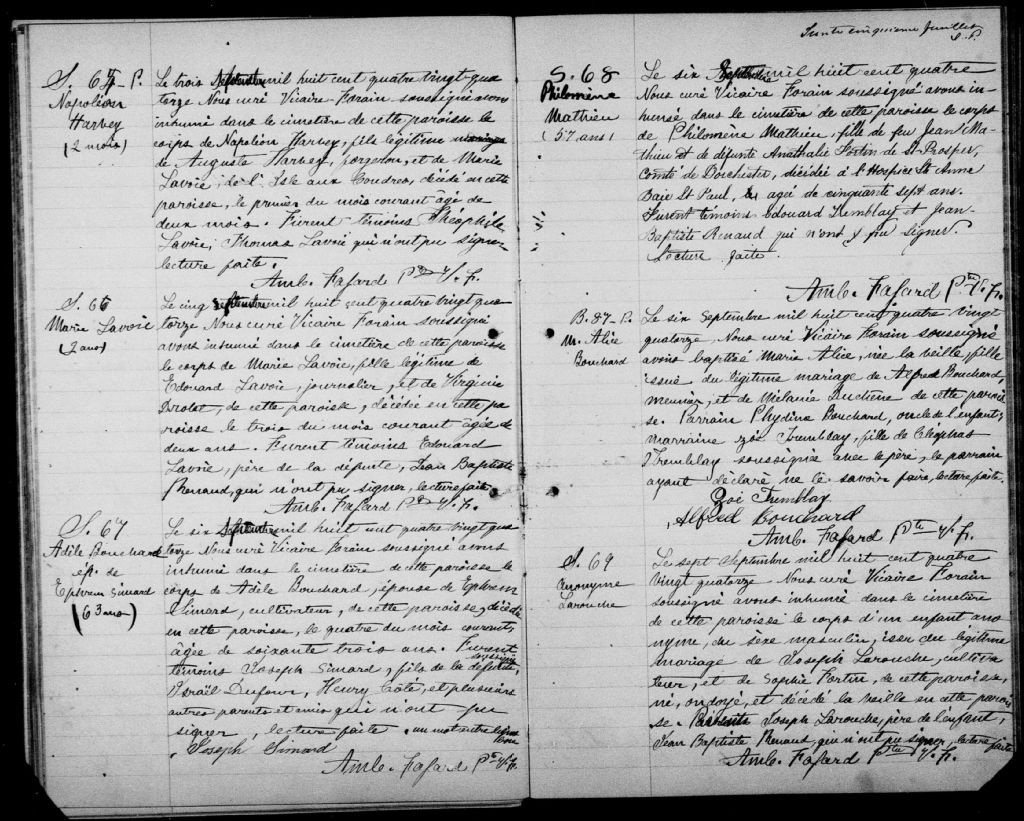 S. 65 P.
Napoléon
Harvey
(2 mois)
Le trois Septembre mil huit cent quatre vingt qua
torze Nous curé Vicaire-Forain soussigné avons
inhumé dans le cimetière de cette paroisse le
corps de Napoléon Harvey, fils légitime
de Auguste Harvey, forgeron, et de Marie
Lavoie, de l'Isle aux Coudres, décédé en cette
paroisse, le premier du mois courant âgé de
deux mois. Furent témoins Théophile
Lavoie, Thomas Lavoie qui n'ont pu signer
lecture faite.
Amb. Fafard Ptre V. F.
S. 66
Marie Lavoie
(2 ans)
Le cinq Septembre mil huit cent quatre vingt qua
torze Nous curé Vicaire Forain soussigné
avons inhumé dans le cimetière de cette paroisse
le corps de Marie Lavoie, fille légitime de
Edouard Lavoie, journalier, et de Virginie
Drolet, de cette paroisse, décédée en cette pa
roisse le trois du mois courant âgée de
deux ans. Furent témoins Edouard
Lavoie, père de la défunte, Jean Baptiste
Renaud, qui n'ont pu signer, lecture faite.
Amb. Fafard Ptre V. F.
S. 67
Adèle Bouchard
ép. de
Ephrem Simard
(63 ans)
Le six Septembre mil huit cent quatre vingt qua
torze Nous curé Vicaire Forain soussigné avons
inhumé dans le cimetière de cette paroisse le
corps de Adèle Bouchard, épouse de Ephrem
Simard, cultivateur, de cette paroisse, décédée
en cette paroisse, le quatre du mois courant,
âgée de soixante trois ans. Furent
témoins Joseph Simard, fils de la défunte, soussigné
Israël Dufour, Henry Côté, et plusieurs
autres parents et amis qui n'ont pu
signer, lecture faite. un mot entre lignes
Joseph Simard
Amb. Fafard Ptre V. F.
Trente cinquième feuillet
S. 68
Philomène
Mathieu
(57 ans)
Le six Septembre mil huit cent quatre
Nous curé Vicaire Forain soussigné avons in-
humé dans le cimetière de cette paroisse le corps
de Philomène Mathieu, fille de feu Jean Ma-
thieu et de défunte Anathalie Fortin de St-Prosper,
Comté de Dorchester, décédée à l'Hospice St Anne
Baie St Paul, agée de cinquante sept ans.
Furent témoins Edouard Tremblay et Jean-
Baptiste Renaud qui n'ont pu signer.
Lecture faite.
Amb. Fafard Ptre V. F.
B. 87 P.
M. Alie
Bouchard
Le six Septembre mil huit cent quatre vingt
quatorze, Nous curé Vicaire Forain soussigné
avons baptisé Marie Alie, née la veille, fille
issue du légitime mariage de Alfred Bouchard,
meunier, et de Mélanie Duchêne de cette parois
se. Parrain Phydime Bouchard, oncle de l'enfant,
marraine Zoé Tremblay, fille de Cléophas
Tremblay soussignée avec le père, le parrain
ayant déclaré ne le savoir faire, lecture faite.
Zoé Tremblay
Alfred Bouchard
Amb. Fafard Ptre V. F.
S. 69
Anonyme
Larouche
Le sept Septembre mil huit cent quatre
vingt quatorze Nous curé Vicaire Forain
soussigné avons inhumé dans le cimetière
de cette paroisse le corps d'un enfant ano
nyme, du sexe masculin, issu du légitime
mariage de Joseph Larouche, cultiva
teur, et de Sophie Fortin, de cette paroisse,
né, ondoyé, et décédé la veille en cette parois
se. Présents Joseph Larouche, père de l'enfant,
Jean Baptiste Renaud, qui n'ont pu signer, lecture faite
Amb. Fafard Ptre V. F.